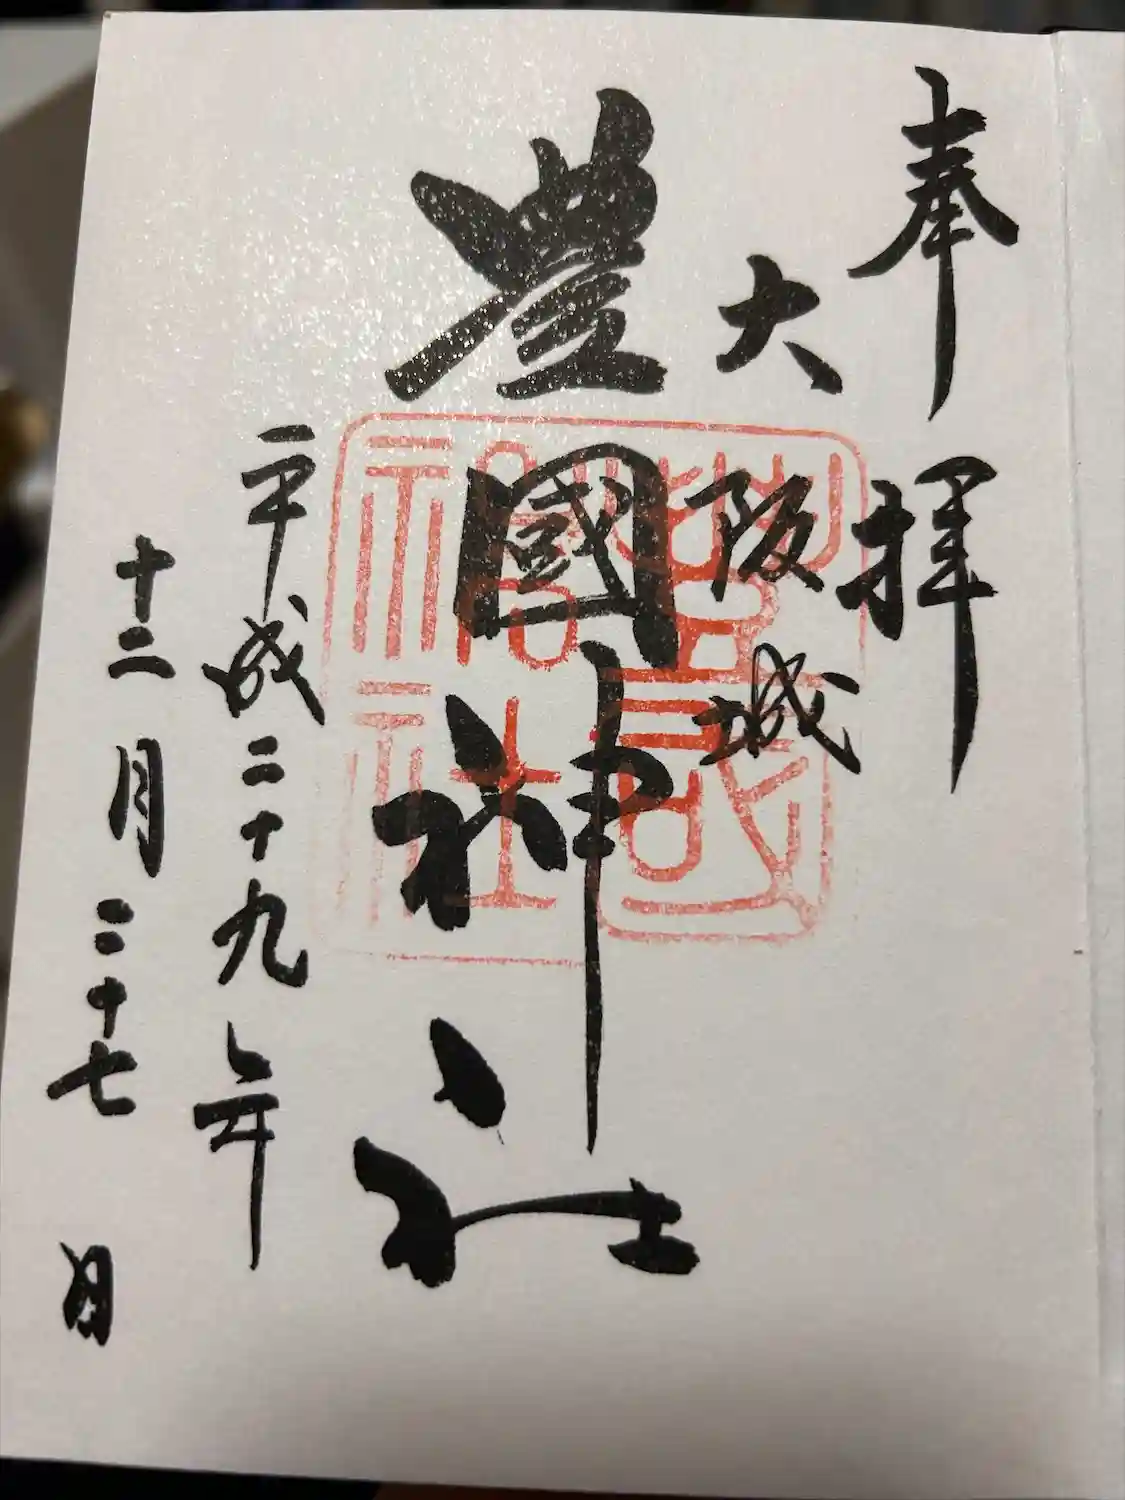 奉拝
大阪城
豊國神社
平成二十九年
十二月二十七日
豊國神社